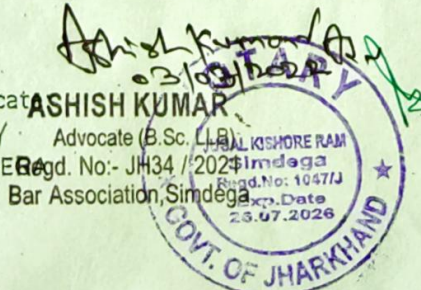 Ashish Kumar
03/03/202
ASHISH KUMAR
Advocate (B.Sc. LLB)
Regd. No:- JH34 / 2021
Bar Association, Simdega
NOTARY
JUGAL KISHORE RAM
Simdega
Regd.No: 1047/J
Exp.Date
26.07.2026
GOVT. OF JHARKHAND